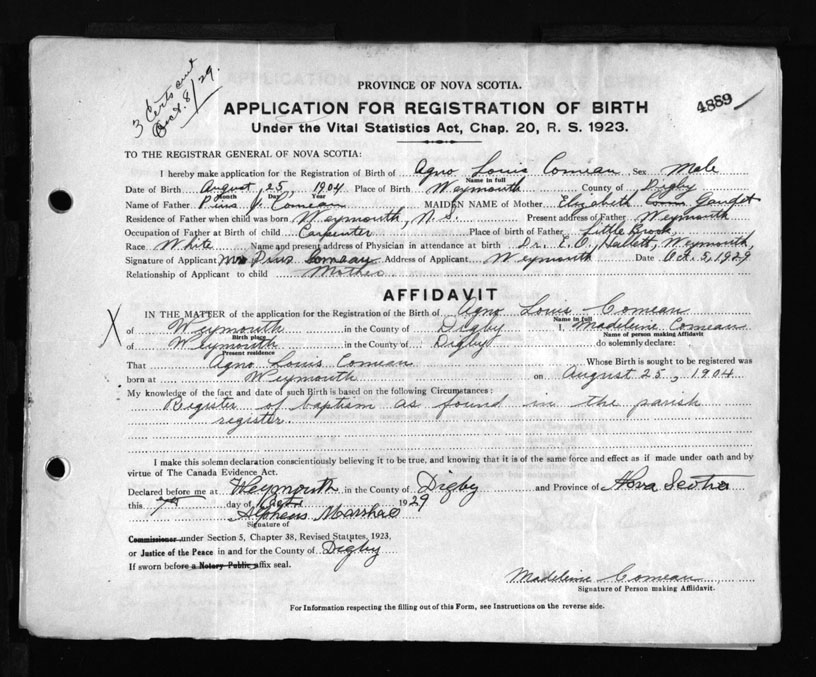 3 Certs sent
Oct. 8/29.
PROVINCE OF NOVA SCOTIA.
4889
APPLICATION FOR REGISTRATION OF BIRTH
Under the Vital Statistics Act, Chap. 20, R. S. 1923.
TO THE REGISTRAR GENERAL OF NOVA SCOTIA:
I hereby make application for the Registration of Birth of Agno Louis Comeau Sex Male
Name in full
Date of Birth August, 25, 1904 Place of Birth Weymouth County of Digby
Month Day Year
Name of Father Pius J. Comeau MAIDEN NAME of Mother Elizabeth Gaudet
Residence of Father when child was born Weymouth, N. S. Present address of Father Weymouth
Occupation of Father at Birth of child Carpenter Place of birth of Father Little Brook,
Race White Name and present address of Physician in attendance at birth Dr. E. O. Hallett, Weymouth,
Signature of Applicant Mrs Pius Comeau Address of Applicant Weymouth Date Oct. 5, 1929
Relationship of Applicant to child Mother
AFFIDAVIT
X
IN THE MATTER of the application for the Registration of the Birth of Agno Louis Comeau
Name in full
of Weymouth in the County of Digby I, Madeleine Comeau
Birth place Name of person making Affidavit
of Weymouth in the County of Digby do solemnly declare:
Present residence
That Agno Louis Comeau Whose Birth is sought to be registered was
born at Weymouth on August 25, 1904
My knowledge of the fact and date of such Birth is based on the following Circumstances:
Register of baptism as found in the parish
register.
I make this solemn declaration conscientiously believing it to be true, and knowing that it is of the same force and effect as if made under oath and by
virtue of The Canada Evidence Act.
Declared before me at Weymouth in the County of Digby and Province of Nova Scotia
this 7th day of Oct. 1929
Alpheus Marshall
Signature of
Commissioner under Section 5, Chapter 38, Revised Statutes, 1923,
or Justice of the Peace in and for the County of Digby
If sworn before a Notary Public affix seal.
Madeleine Comeau
Signature of Person making Affidavit.
For Information respecting the filling out of this Form, see Instructions on the reverse side.